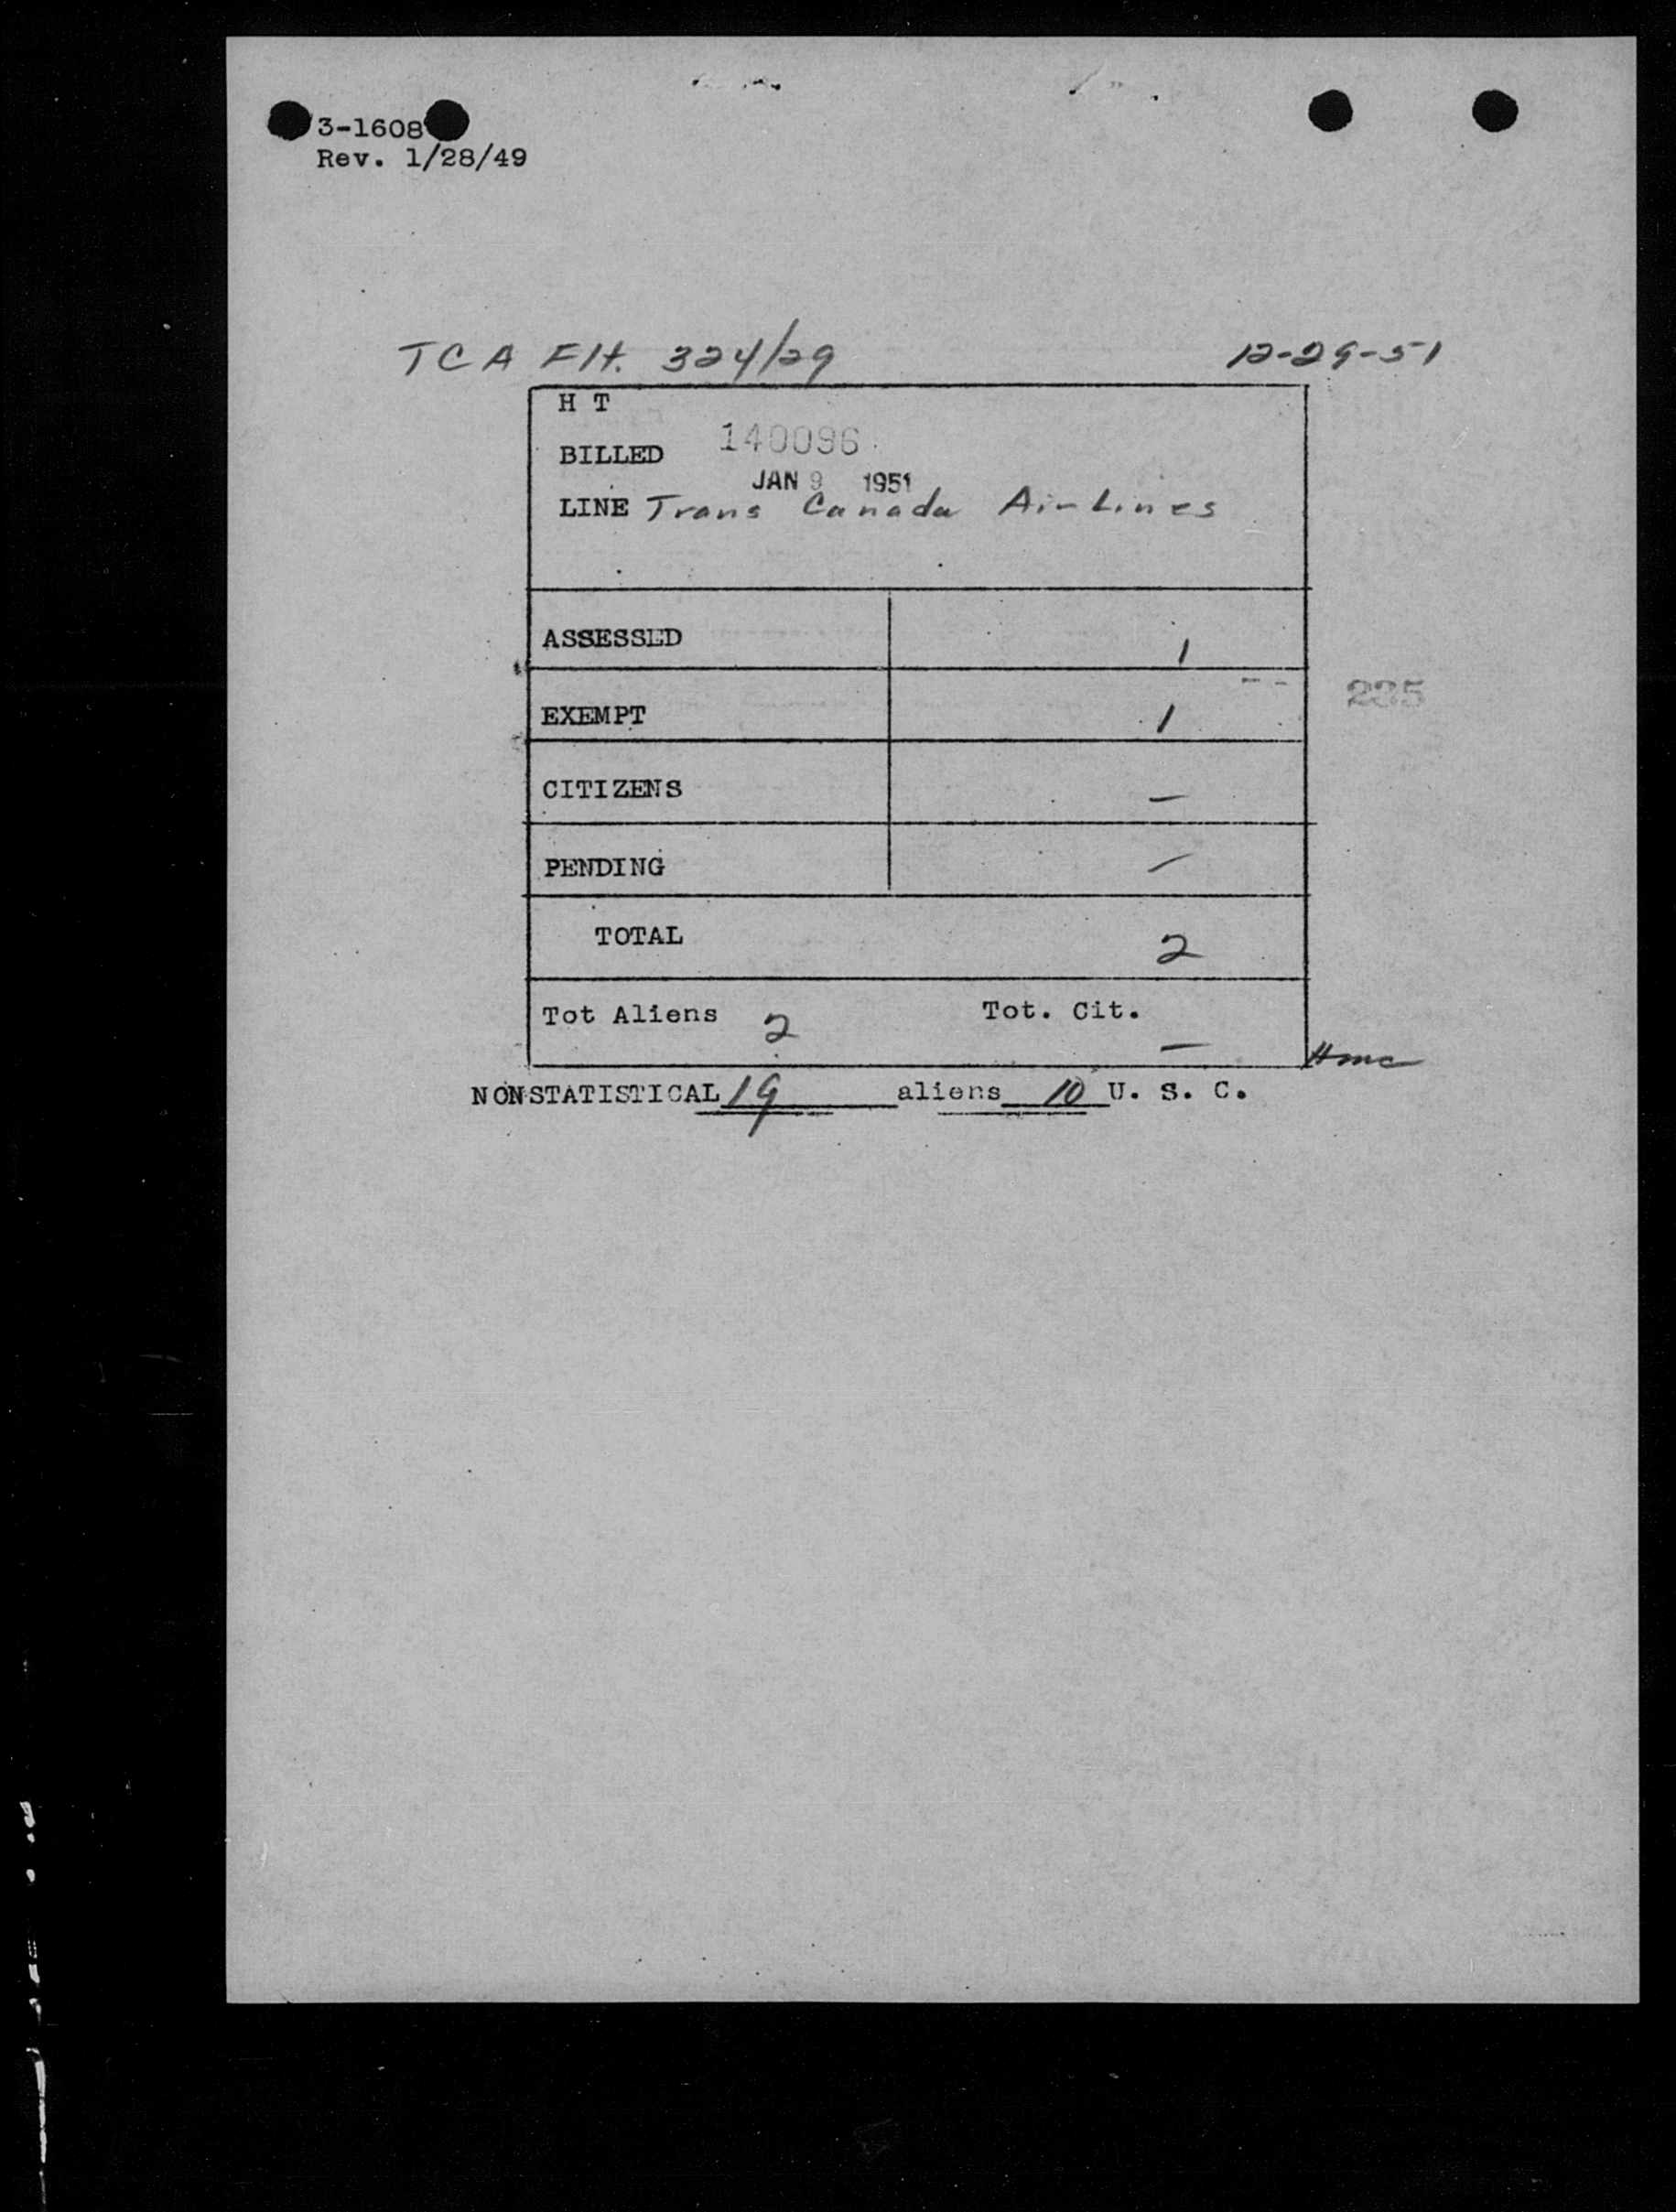 3-1608
Rev. 1/28/49
TCA Flt. 324/29 12-29-51
H T
BILLED 140096
JAN 9 1951
LINE Trans Canada Air Lines
ASSESSED 1
EXEMPT 1
235
CITIZENS –
PENDING –
TOTAL 2
Tot Aliens 2 Tot. Cit. –
Hmc
NONSTATISTICAL 19 aliens 10 U. S. C.